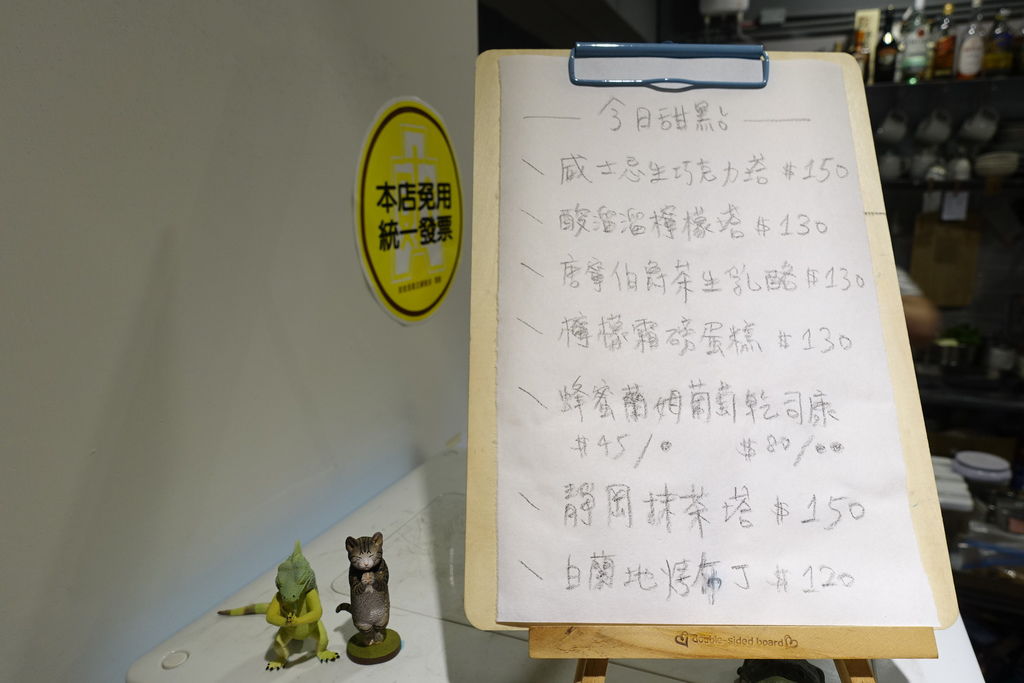 今日甜點
威士忌生巧克力塔 $150
酸溜溜檸檬塔 $130
唐寧伯爵茶生乳酪 $130
檸檬霜磅蛋糕 $130
蜂蜜蘭姆葡萄乾司康
$45/● $80/●●
靜岡抹茶塔 $150
白蘭地烤布丁 $120
本店免用
統一發票
double-sided board